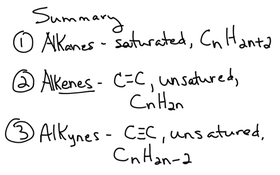 Summary
① Alkanes - saturated, CnH2n+2
② Alkenes - C=C, unsatured,
CnH2n
③ Alkynes - C≡C, unsatured,
CnH2n-2